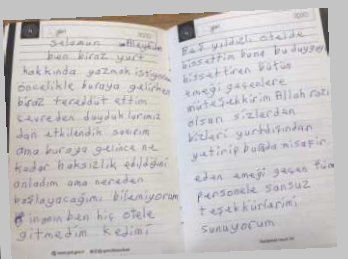 Selamun Aleyküm
ben biraz yurt
hakkında yazmak istiyorum
öncelikle buraya gelirken
biraz tereddüt ettim
çevreden duyduklarımız
dan etkilendik sanırım
ama buraya gelince ne
kadar haksızlık edildiğini
anladım ama nereden
başlayacağımı bilemiyorum
inanın ben hiç otele
gitmedim kedimi
Beş yıldızlı otelde
hissettim bana bu duyguyu
hissettiren bütün
emeği geçenlere
müteşekkirim Allah razı
olsun sizlerden
bizleri yurtdışından
getirip burada misafir
eden emeği geçen tüm
personele sonsuz
teşekkürlerimi
sunuyorum